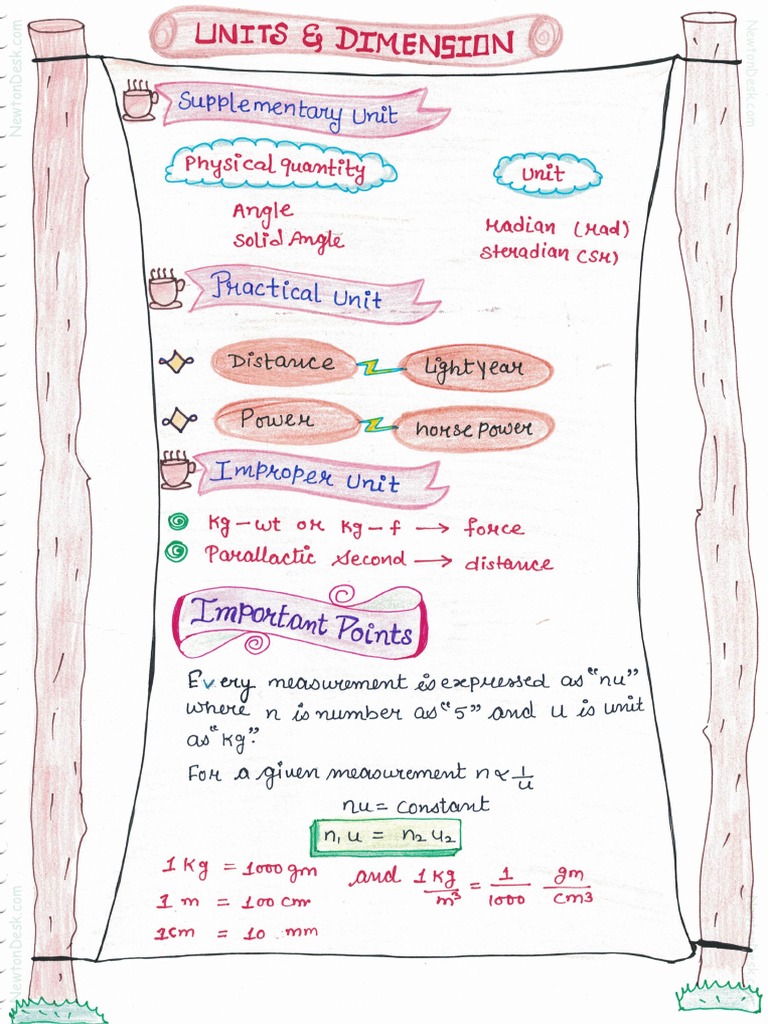 UNITS & DIMENSION
Supplementary Unit
Physical quantity
Unit
Angle
Radian (rad)
Solid Angle
Steradian (sr)
Practical Unit
Distance
Light year
Power
horse power
Improper Unit
Kg-wt or Kg-f → force
Parallactic second → distance
Important Points
Every measurement is expressed as "nu"
where n is number as "5" and u is unit
as "kg".
For a given measurement n ∝ 1/u
nu = constant
n₁u = n₂u₂
1 Kg = 1000 gm and 1 kg/m³ = 1/1000 gm/cm3
1 m = 100 cm
1cm = 10 mm
NewtonDesk.com
NewtonDesk.com
NewtonDesk.com
NewtonDesk.com